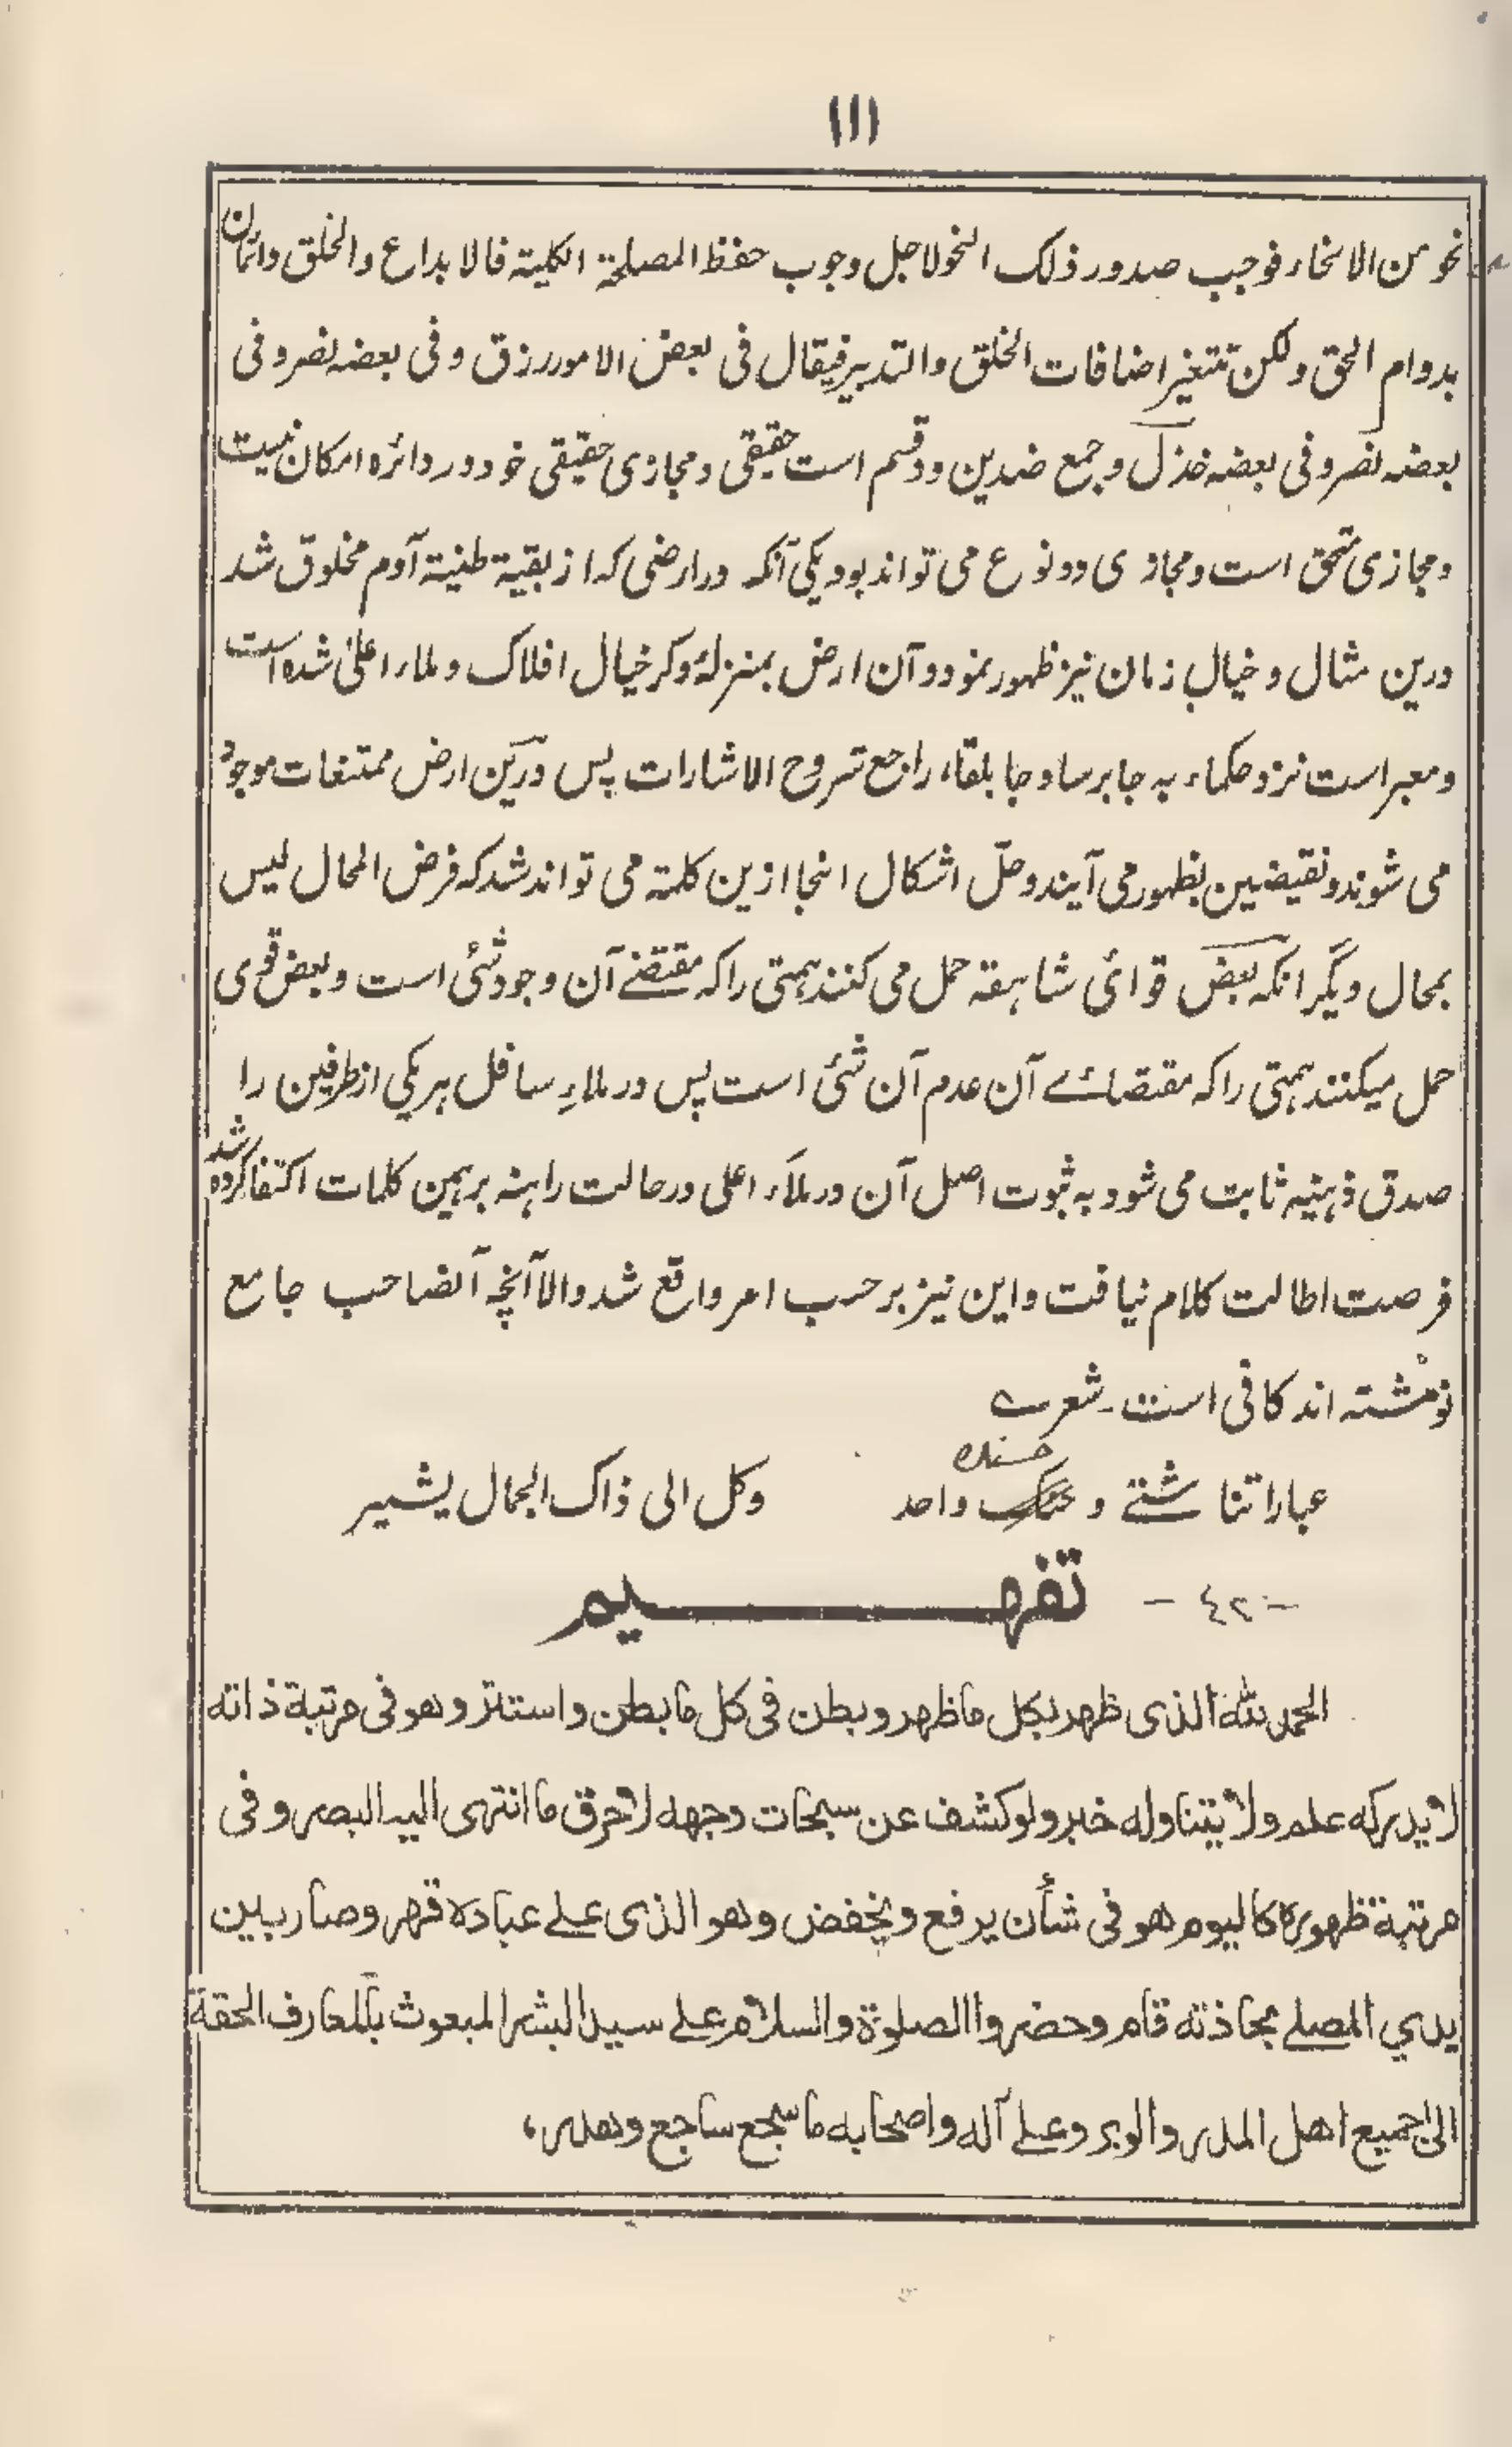 ١١١
نحو من الانحاء فوجب صدور ذلک النحو لاجل وجوب حفظ المصلحة الکلیة فالابداع والخلق دائمان
بدوام الحق ولکن تتغیر اضافات الخلق والتدبیر فیقال فی بعض الامور رزق و فی بعضه نصر و فی
بعضه نصر و فی بعضه خذل و جمع ضدین دو قسم است حقیقی و مجازی حقیقی خود در دائره امکان نیست
و مجازی متحقق است و مجازی دو نوع می تواند بود یکی آنکه در ارضی که از بقیة طنیة آدم مخلوق شد
درین مثال و خیال زمان نیز ظهور نمود و آن ارض بمنزلۀ وکر خیال افلاک و ملاء اعلیٰ شده است
و معبر است نزد حکماء به جابرسا و جابلقاء راجع شروح الاشارات پس درین ارض ممتنعات موجود
می شوند و نقیضین بظهور می آیند و حلّ اشکال اینجا ازین کلمة می تواند شد که فرض المحال لیس
بمحال دیگر انکه بعض قوائ شاهقه حمل می کنند همتی را که مقتضے آن وجود شئ است و بعض قوی
حمل میکنند همتی را که مقتضائے آن عدم آن شئ است پس در ملاءِ سافل هر یکی از طرفین را
صدق ذهنیه ثابت می شود به ثبوت اصل آن در ملاء اعلی در حالت راهنه بر همین کلمات اکتفا کرده شد
فرصت اطالت کلام نیافت و این نیز بر حسب امر واقع شد والا آنچه آنصاحب جامع
نوشته اند کافی است۔ شعرے
عباراتنا شتے و حسنک واحد وکل الی ذاک الجمال یشیر
حسنک
- ٤٢ - تفهیم
الحمد لله الذی ظهر بکل ما ظهر و بطن فی کل ما بطن و استتر و هو فی مرتبة ذاته
لا یدرکه علم ولا یتناوله خبر ولو کشف عن سبحات وجهه لاحرق ما انتهی الیه البصر و فی
مرتبة ظهوره کل یوم هو فی شأن یرفع و یخفض و هو الذی علے عباده قهر و صار بین
یدي المصلے بمحاذته قام و حضر و الصلوة والسلام علے سید البشر المبعوث بالمعارف الحقة
الی جمیع اهل المدر والوبر و علے آله و اصحابه ما سجع ساجع و هدر،